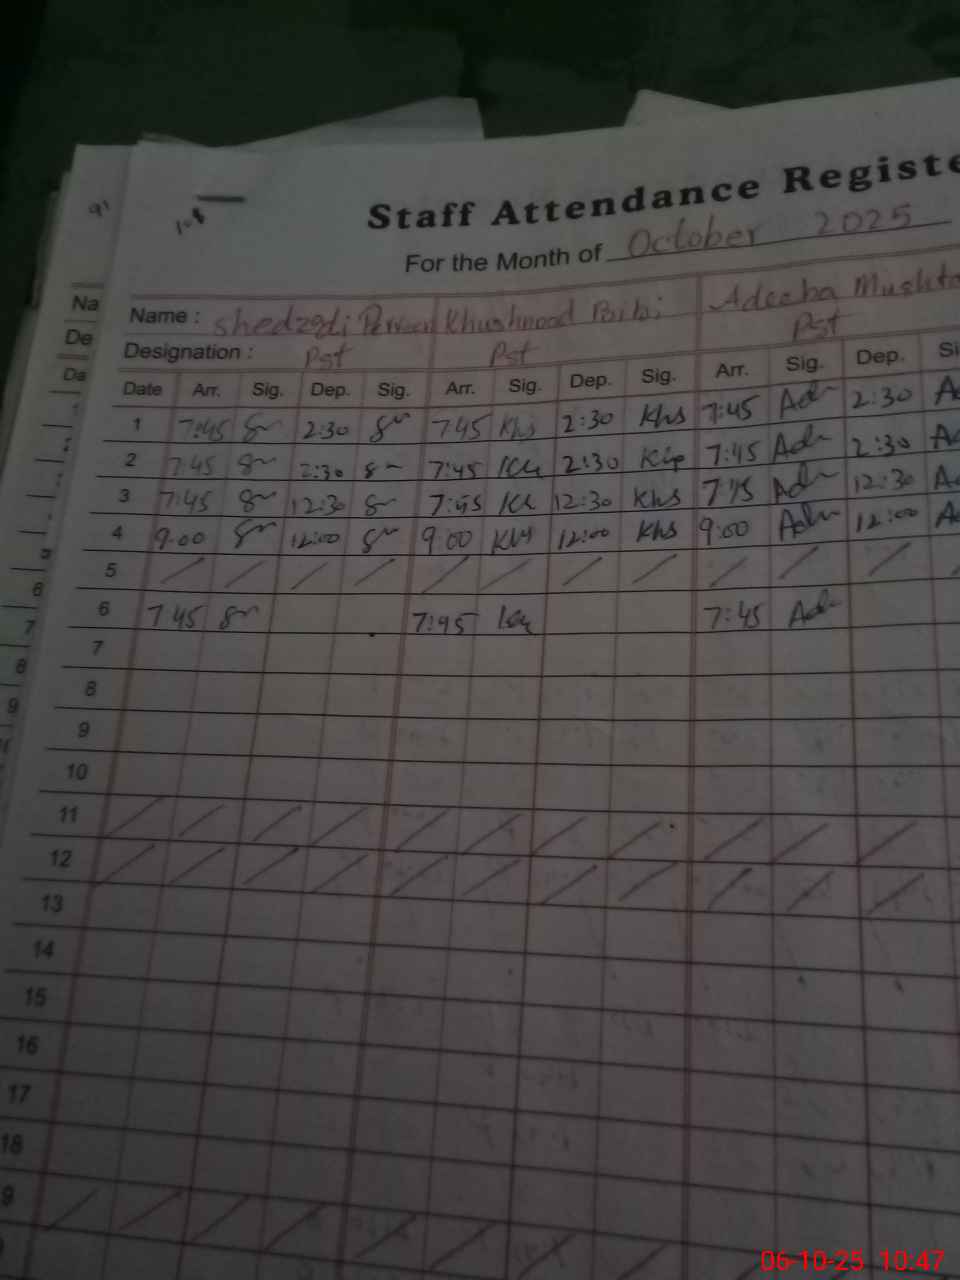 91
Staff Attendance Registe
For the Month of October 2025
Name : Shedzadi Perveen Khushnood Baibi Adeeba Mushta
Designation : Pst Pst Pst
Date Arr. Sig. Dep. Sig. Arr. Sig. Dep. Sig. Arr. Sig. Dep. Si
1 7:45 2:30 7:45 Khs 2:30 Khs 7:45 Adn 2:30 A
2 7:45 2:30 7:45 2:30 7:45 Adn 2:30 A
3 7:45 12:30 7:45 12:30 Khs 7:45 Adn 12:30 A
4 9:00 12:00 9:00 Khs 12:00 Khs 9:00 Adn 12:00 A
5
6 7:45 7:45 7:45 Adn
7
8
9
10
11
12
13
14
15
16
17
18
9
Na
De
Da
6
7
8
9
06-10-25 10:47